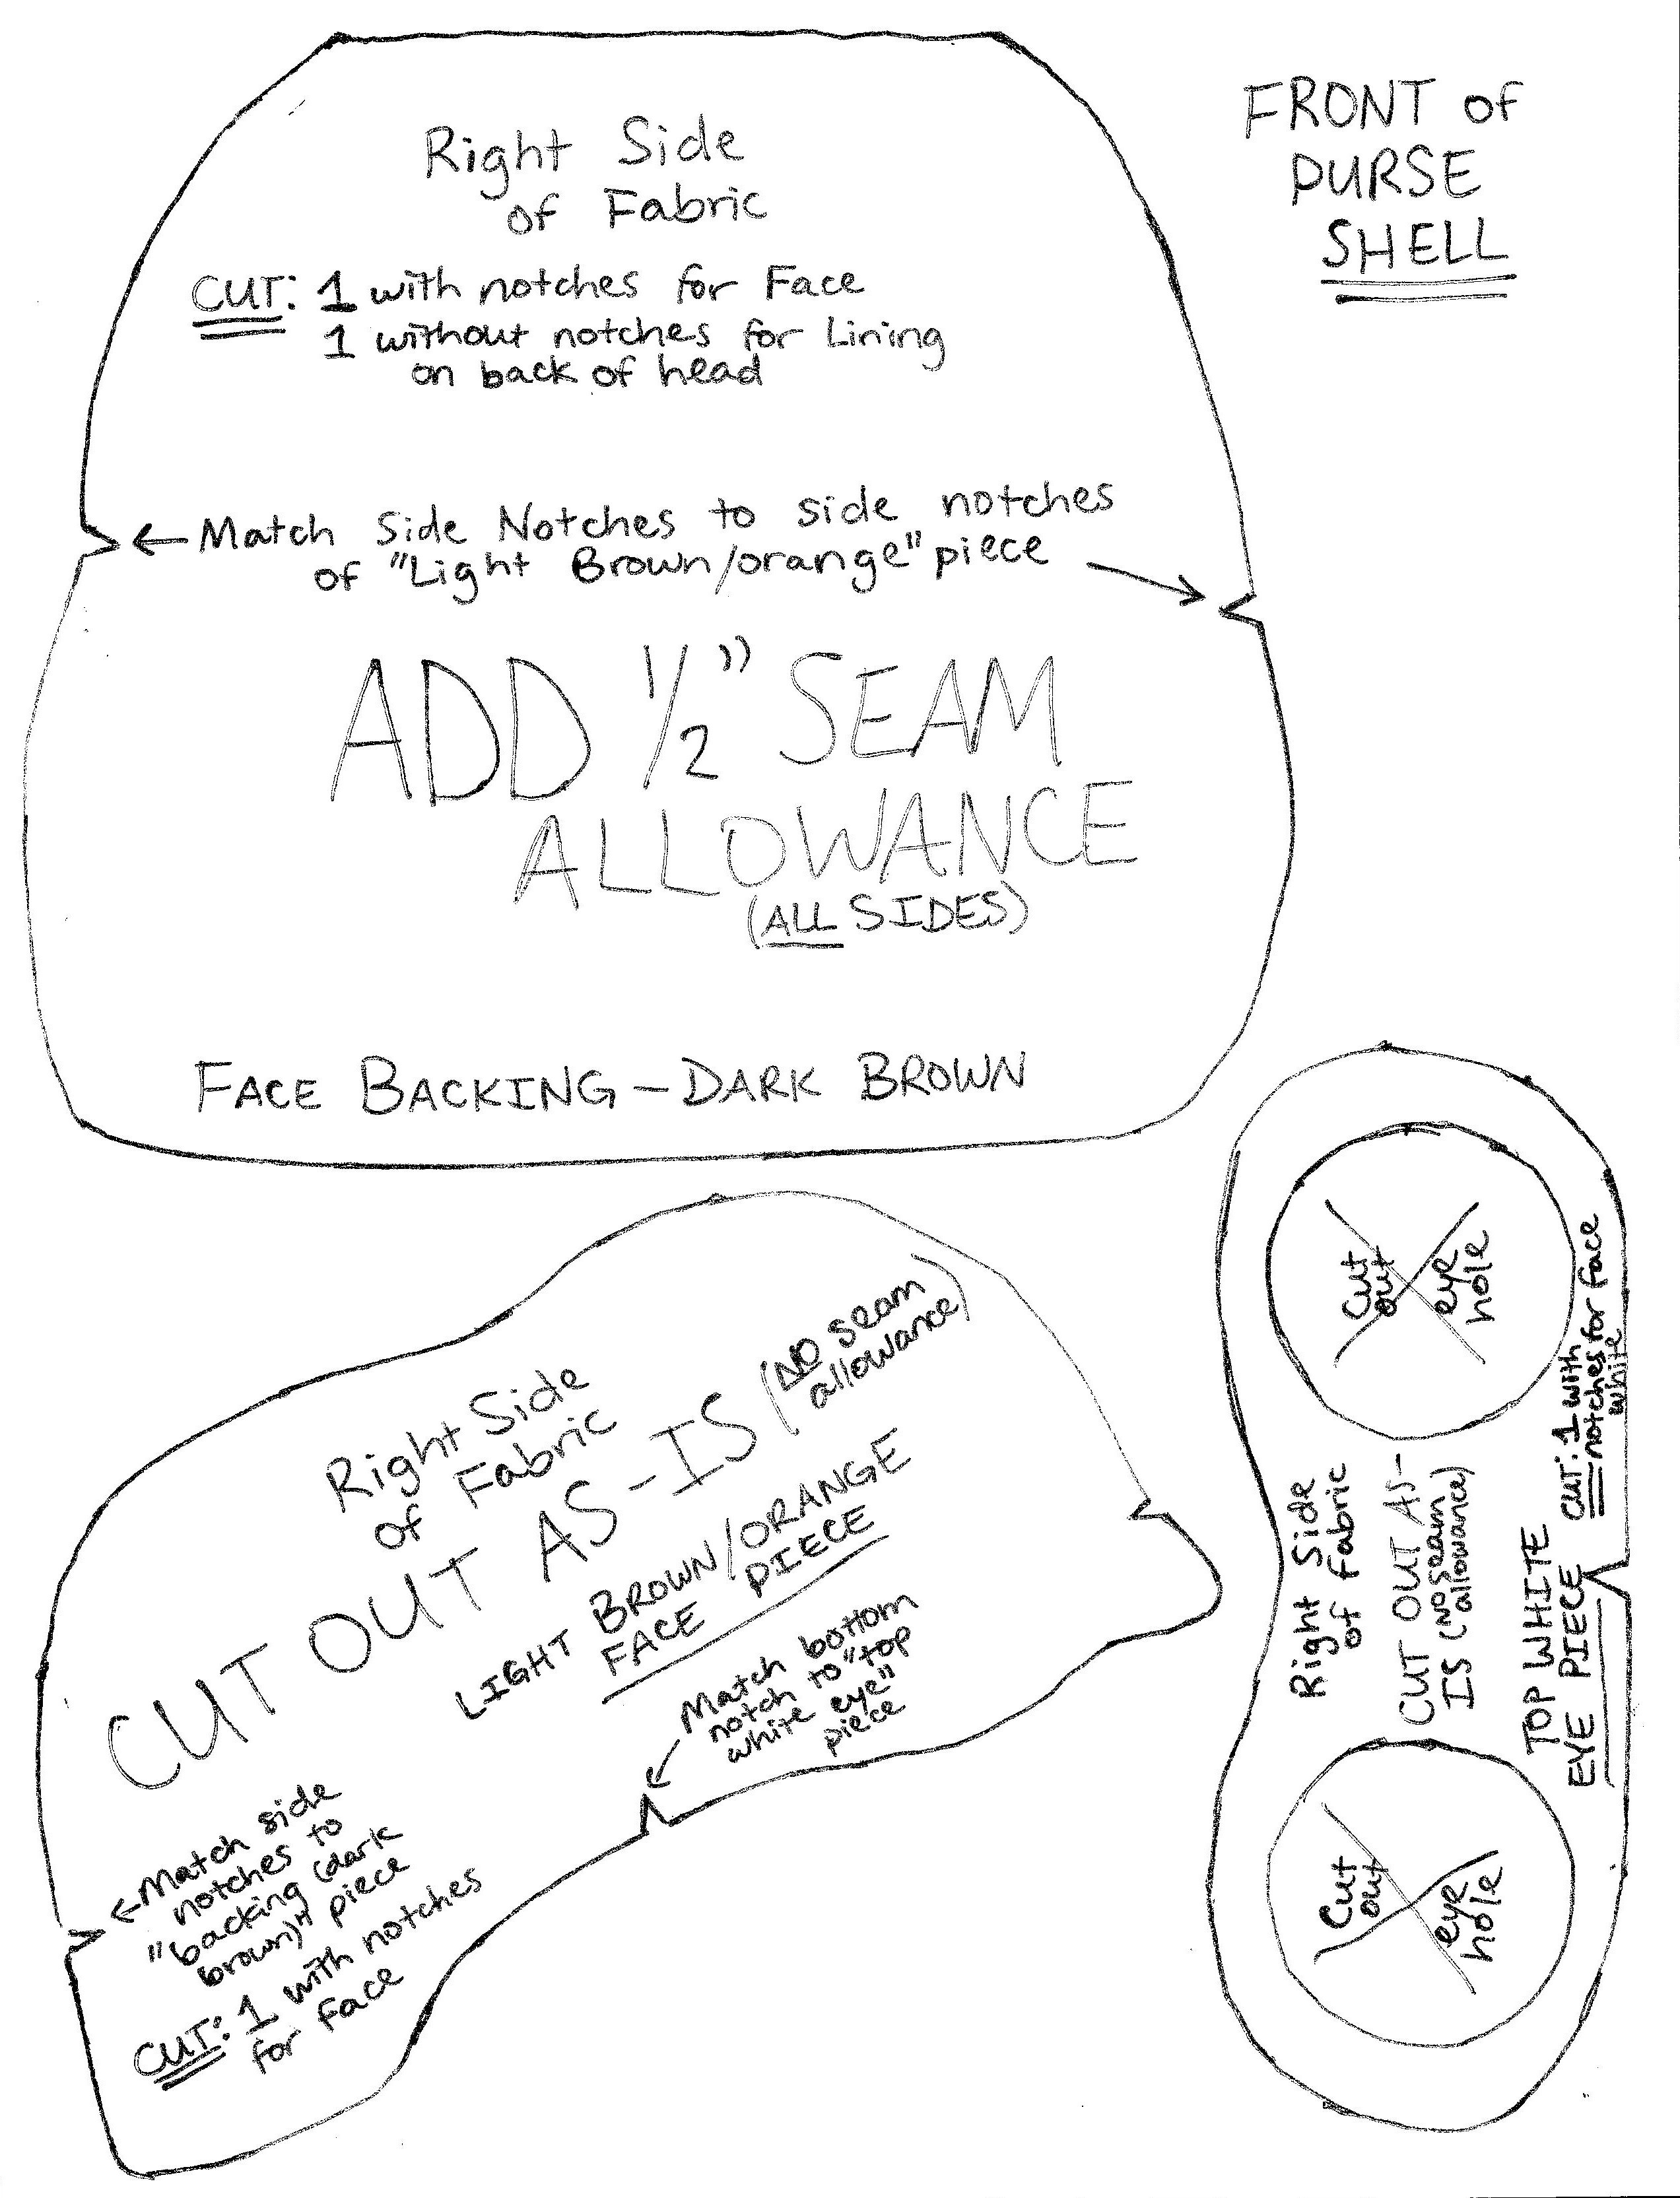 FRONT of
PURSE
SHELL
Right Side
of Fabric
CUT: 1 with notches for Face
1 without notches for Lining
on back of head
← Match Side Notches to side notches
of "Light Brown/orange" piece →
ADD 1/2" SEAM
ALLOWANCE
(ALL SIDES)
FACE BACKING - DARK BROWN
Right Side
of Fabric
CUT OUT AS-IS (NO seam
allowance)
LIGHT BROWN/ORANGE
FACE PIECE
Match bottom
notch to "top
white eye"
piece
← Match side
notches to
"backing (dark
brown)" piece
CUT: 1 with notches
for face
Cut
out
eye
hole
Right Side
of Fabric
CUT OUT AS-
IS (NO seam
allowance)
TOP WHITE
EYE PIECE
CUT: 1 with
notches for face
white
Cut
out
eye
hole